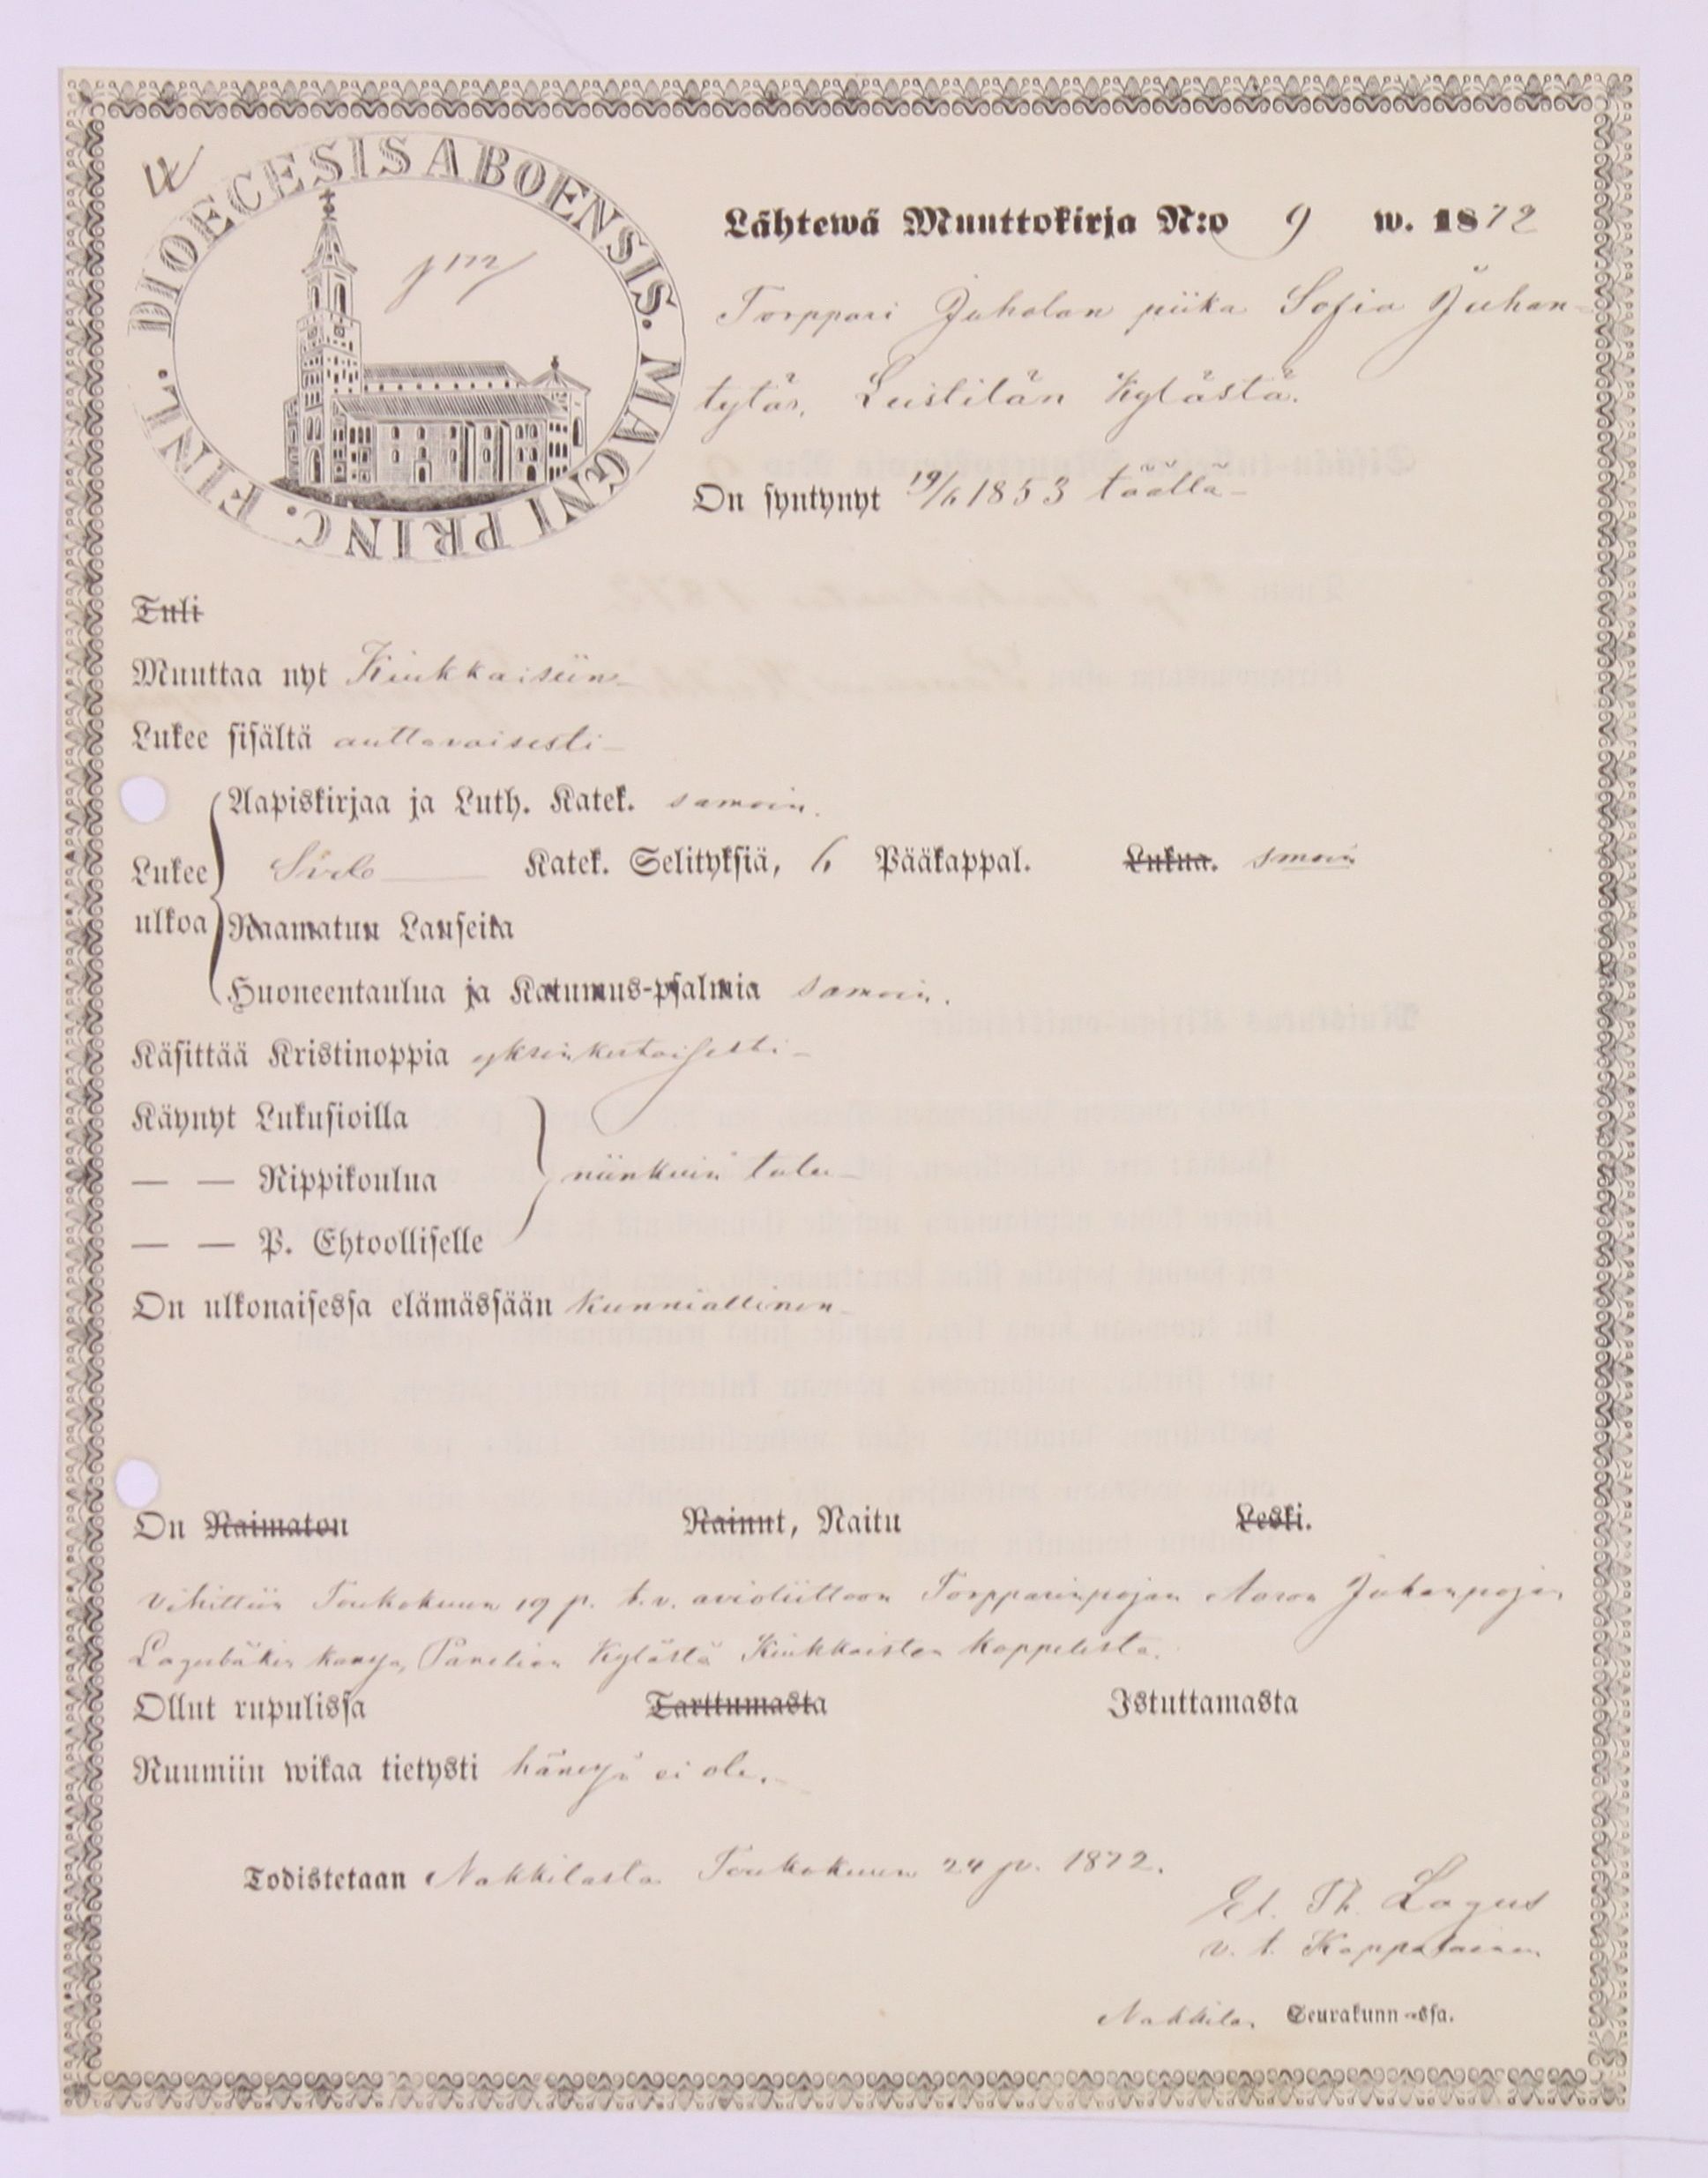 DIOECESIS ABOENSIS. MAGNI PRINC. FINL.
Lähtewä Muuttokirja N:o 9 w. 1872
Torppari Juholan piika Sofia Juhan-
tytär, Leistilän Kylästä.
On syntynyt 19/6 1853 täällä
Tuli
Muuttaa nyt Kiukkaisiin
Lukee sisältä auttavaisesti
Aapiskirjaa ja Luth. Katek. samoin.
Lukee ulkoa
Katek. Selityksiä, 6 Pääkappal. Lukua. smoin
Raamatun Lauseita
Huoneentaulua ja Katumus-psalmia samoin.
Käsittää Kristinoppia yksinkertaisesti
Käynyt Lukusioilla
— — Rippikoulua niinkuin tulee
— — P. Ehtoolliselle
On ulkonaisessa elämässään kunniallinen
On Naimaton Nainut, Naitu Leski.
Vihittiin Toukokuun 19 p. t.v. avioliittoon Torpparinpojan Aaron Juhanpojan
Lagerbäkin kanssa, Panelian Kylästä Kiukkaisten kappelista.
Ollut rupulissa Tarttumasta Istuttamasta
Ruumiin wikaa tietysti hänessä ei ole.
Todistetaan Nakkilasta Toukokuun 24 p. 1872.
Th. Lagus
v. t. Kappalainen
Nakkilan Seurakunn-ssa.